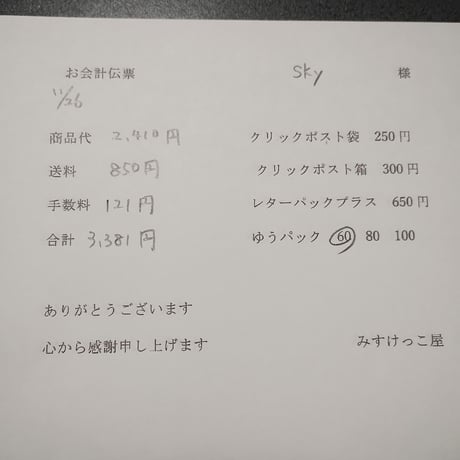 お会計伝票 Sky 様
11/26
商品代 2,410円 クリックポスト袋 250円
送料 850円 クリックポスト箱 300円
手数料 121円 レターパックプラス 650円
合計 3,381円 ゆうパック 60 80 100
ありがとうございます
心から感謝申し上げます みすけっこ屋